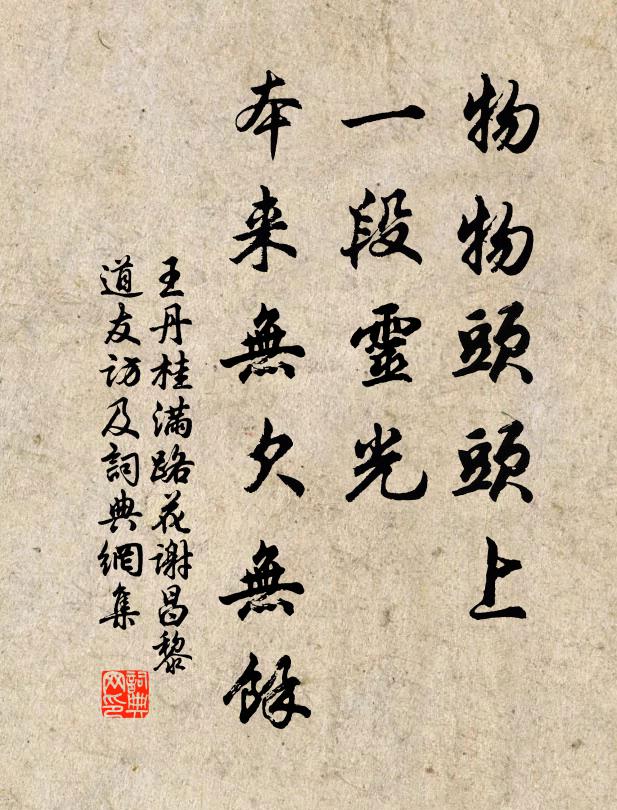 物物頭頭上
一段靈光
本来無欠無餘
王丹桂满路花谢昌黎
道友访及詞典網集
詞典网印